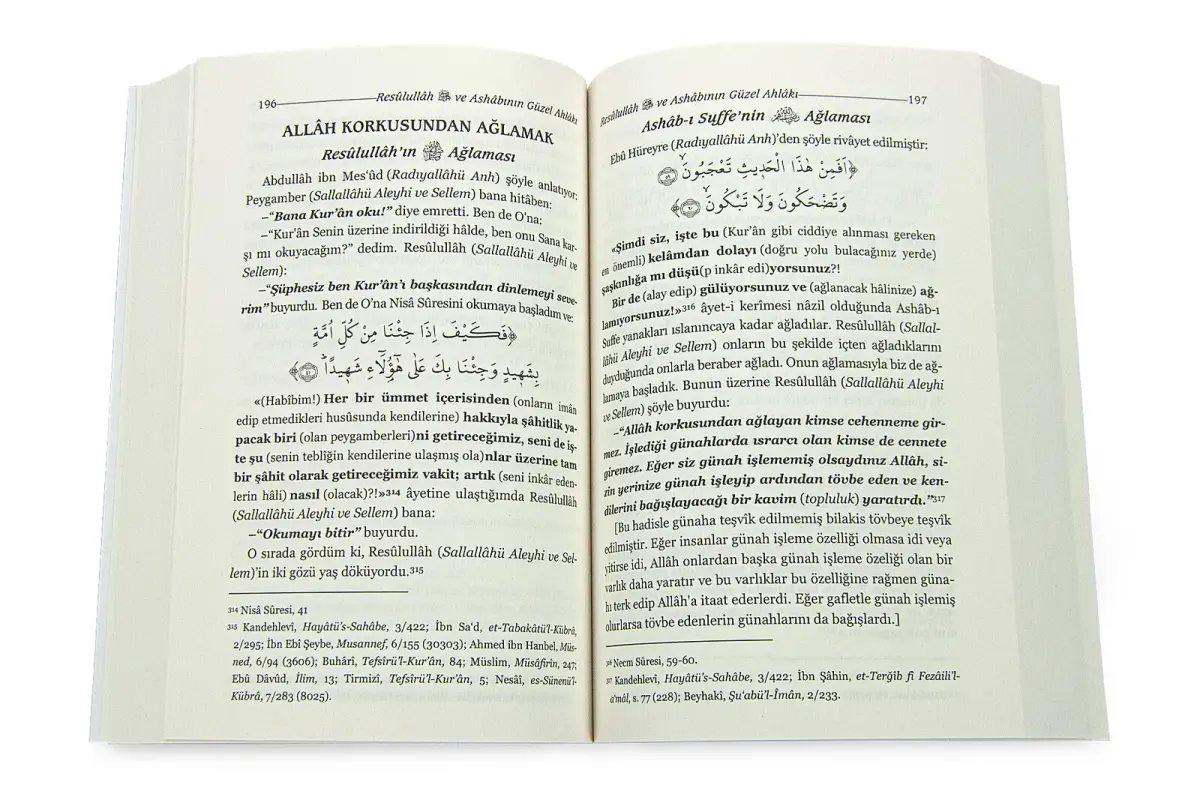 196 Resûlullâh ﷺ ve Ashâbının Güzel Ahlâkı
ALLÂH KORKUSUNDAN AĞLAMAK
Resûlullâh'ın ﷺ Ağlaması
Abdullâh ibn Mes'ûd (Radıyallâhü Anh) şöyle anlatıyor:
Peygamber (Sallallâhü Aleyhi ve Sellem) bana hitâben:
–“Bana Kur'ân oku!” diye emretti. Ben de O'na:
–“Kur'ân Senin üzerine indirildiği hâlde, ben onu Sana kar-
şı mı okuyacağım?” dedim. Resûlullâh (Sallallâhü Aleyhi ve
Sellem):
–“Şüphesiz ben Kur'ân'ı başkasından dinlemeyi seve-
rim” buyurdu. Ben de O'na Nisâ Sûresini okumaya başladım ve:
﴿فَكَيْفَ اِذَا جِئْنَا مِنْ كُلِّ اُمَّةٍ
بِشَه۪يدٍ وَجِئْنَا بِكَ عَلٰى هٰٓؤُلَٓاءِ شَه۪يدًاۜ ﴿٤١﴾
«(Habîbim!) Her bir ümmet içerisinden (onların imân
edip etmedikleri husûsunda kendilerine) hakkıyla şâhitlik ya-
pacak biri (olan peygamberleri)ni getireceğimiz, seni de iş-
te şu (senin tebliğin kendilerine ulaşmış ola)nlar üzerine tam
bir şâhit olarak getireceğimiz vakit; artık (seni inkâr eden-
lerin hâli) nasıl (olacak)?!»³¹⁴ âyetine ulaştığımda Resûlullâh
(Sallallâhü Aleyhi ve Sellem) bana:
–“Okumayı bitir” buyurdu.
O sırada gördüm ki, Resûlullâh (Sallallâhü Aleyhi ve Sel-
lem)'in iki gözü yaş döküyordu.³¹⁵
³¹⁴ Nisâ Sûresi, 41
³¹⁵ Kandehlevî, Hayâtü's-Sahâbe, 3/422; İbn Sa'd, et-Tabakâtü'l-Kübrâ,
2/295; İbn Ebî Şeybe, Musannef, 6/155 (30303); Ahmed ibn Hanbel, Müs-
ned, 6/94 (3606); Buhârî, Tefsîrü'l-Kur'ân, 84; Müslim, Müsâfirîn, 247;
Ebû Dâvûd, İlim, 13; Tirmizî, Tefsîrü'l-Kur'ân, 5; Nesaî, es-Sünenü'l-
Kübrâ, 7/283 (8025).
Resûlullâh ﷺ ve Ashâbının Güzel Ahlâkı 197
Ashâb-ı Suffe'nin Ağlaması
Ebû Hüreyre (Radıyallâhü Anh)'den şöyle rivâyet edilmiştir:
﴿اَفَمِنْ هٰذَا الْحَد۪يثِ تَعْجَبُونَۙ ﴿٥٩﴾
وَتَضْحَكُونَ وَلَا تَبْكُونَۙ ﴿٦٠﴾
«Şimdi siz, işte bu (Kur'ân gibi ciddiye alınması gereken
en önemli) kelâmdan dolayı (doğru yolu bulacağınız yerde)
şaşkınlığa mı düşü(p inkâr edi)yorsunuz?!
Bir de (alay edip) gülüyorsunuz ve (ağlanacak hâlinize) ağ-
lamıyorsunuz!»³¹⁶ âyet-i kerîmesi nâzil olduğunda Ashâb-ı
Suffe yanakları ıslanıncaya kadar ağladılar. Resûlullâh (Sallal-
lâhü Aleyhi ve Sellem) onların bu şekilde içten ağladıklarını
duyduğunda onlarla beraber ağladı. Onun ağlamasıyla biz de ağ-
lamaya başladık. Bunun üzerine Resûlullâh (Sallallâhü Aleyhi
ve Sellem) şöyle buyurdu:
–“Allâh korkusundan ağlayan kimse cehenneme gir-
mez. İşlediği günahlarda ısrarcı olan kimse de cennete
giremez. Eğer siz günah işlememiş olsaydınız Allâh, si-
zin yerinize günah işleyip ardından tövbe eden ve ken-
dilerini bağışlayacağı bir kavim (topluluk) yaratırdı.”³¹⁷
[Bu hadisle günaha teşvîk edilmemiş bilakis tövbeye teşvîk
edilmiştir. Eğer insanlar günah işleme özelliği olmasa idi veya
yitirse idi, Allâh onlardan başka günah işleme özelliği olan bir
varlık daha yaratır ve bu varlıklar bu özelliğine rağmen güna-
hı terk edip Allâh'a itaat ederlerdi. Eğer gafletle günah işlemiş
olurlarsa tövbe edenlerin günahlarını da bağışlardı.]
³¹⁶ Necm Sûresi, 59-60.
³¹⁷ Kandehlevî, Hayâtü's-Sahâbe, 3/422; İbn Şâhin, et-Terğîb fî Fezâili'l-
a'mâl, s. 77 (228); Beyhakî, Şu'abü'l-Îmân, 2/233.